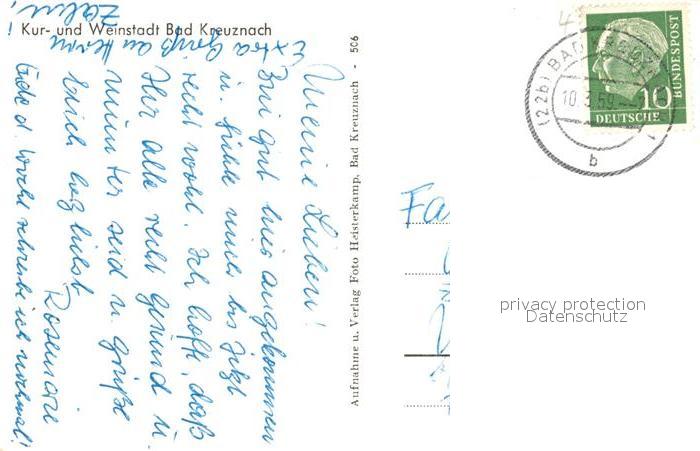 Kur- und Weinstadt Bad Kreuznach
Extra Gruß an Herrn
Meine Lieben!
Bin gut hier angekommen
u. fühle mich bis jetzt
recht wohl. Ich hoffe, daß
Ihr alle recht gesund u.
munter seid u. grüße
Euch herzlichst
Rosemarie
Ende d. Woche schreibe ich nochmal!
Aufnahme u. Verlag Foto Heisterkamp, Bad Kreuznach - 506
(22b) BAD KREUZNACH
10.3.59
b
10
DEUTSCHE
BUNDESPOST
Fa
privacy protection
Datenschutz